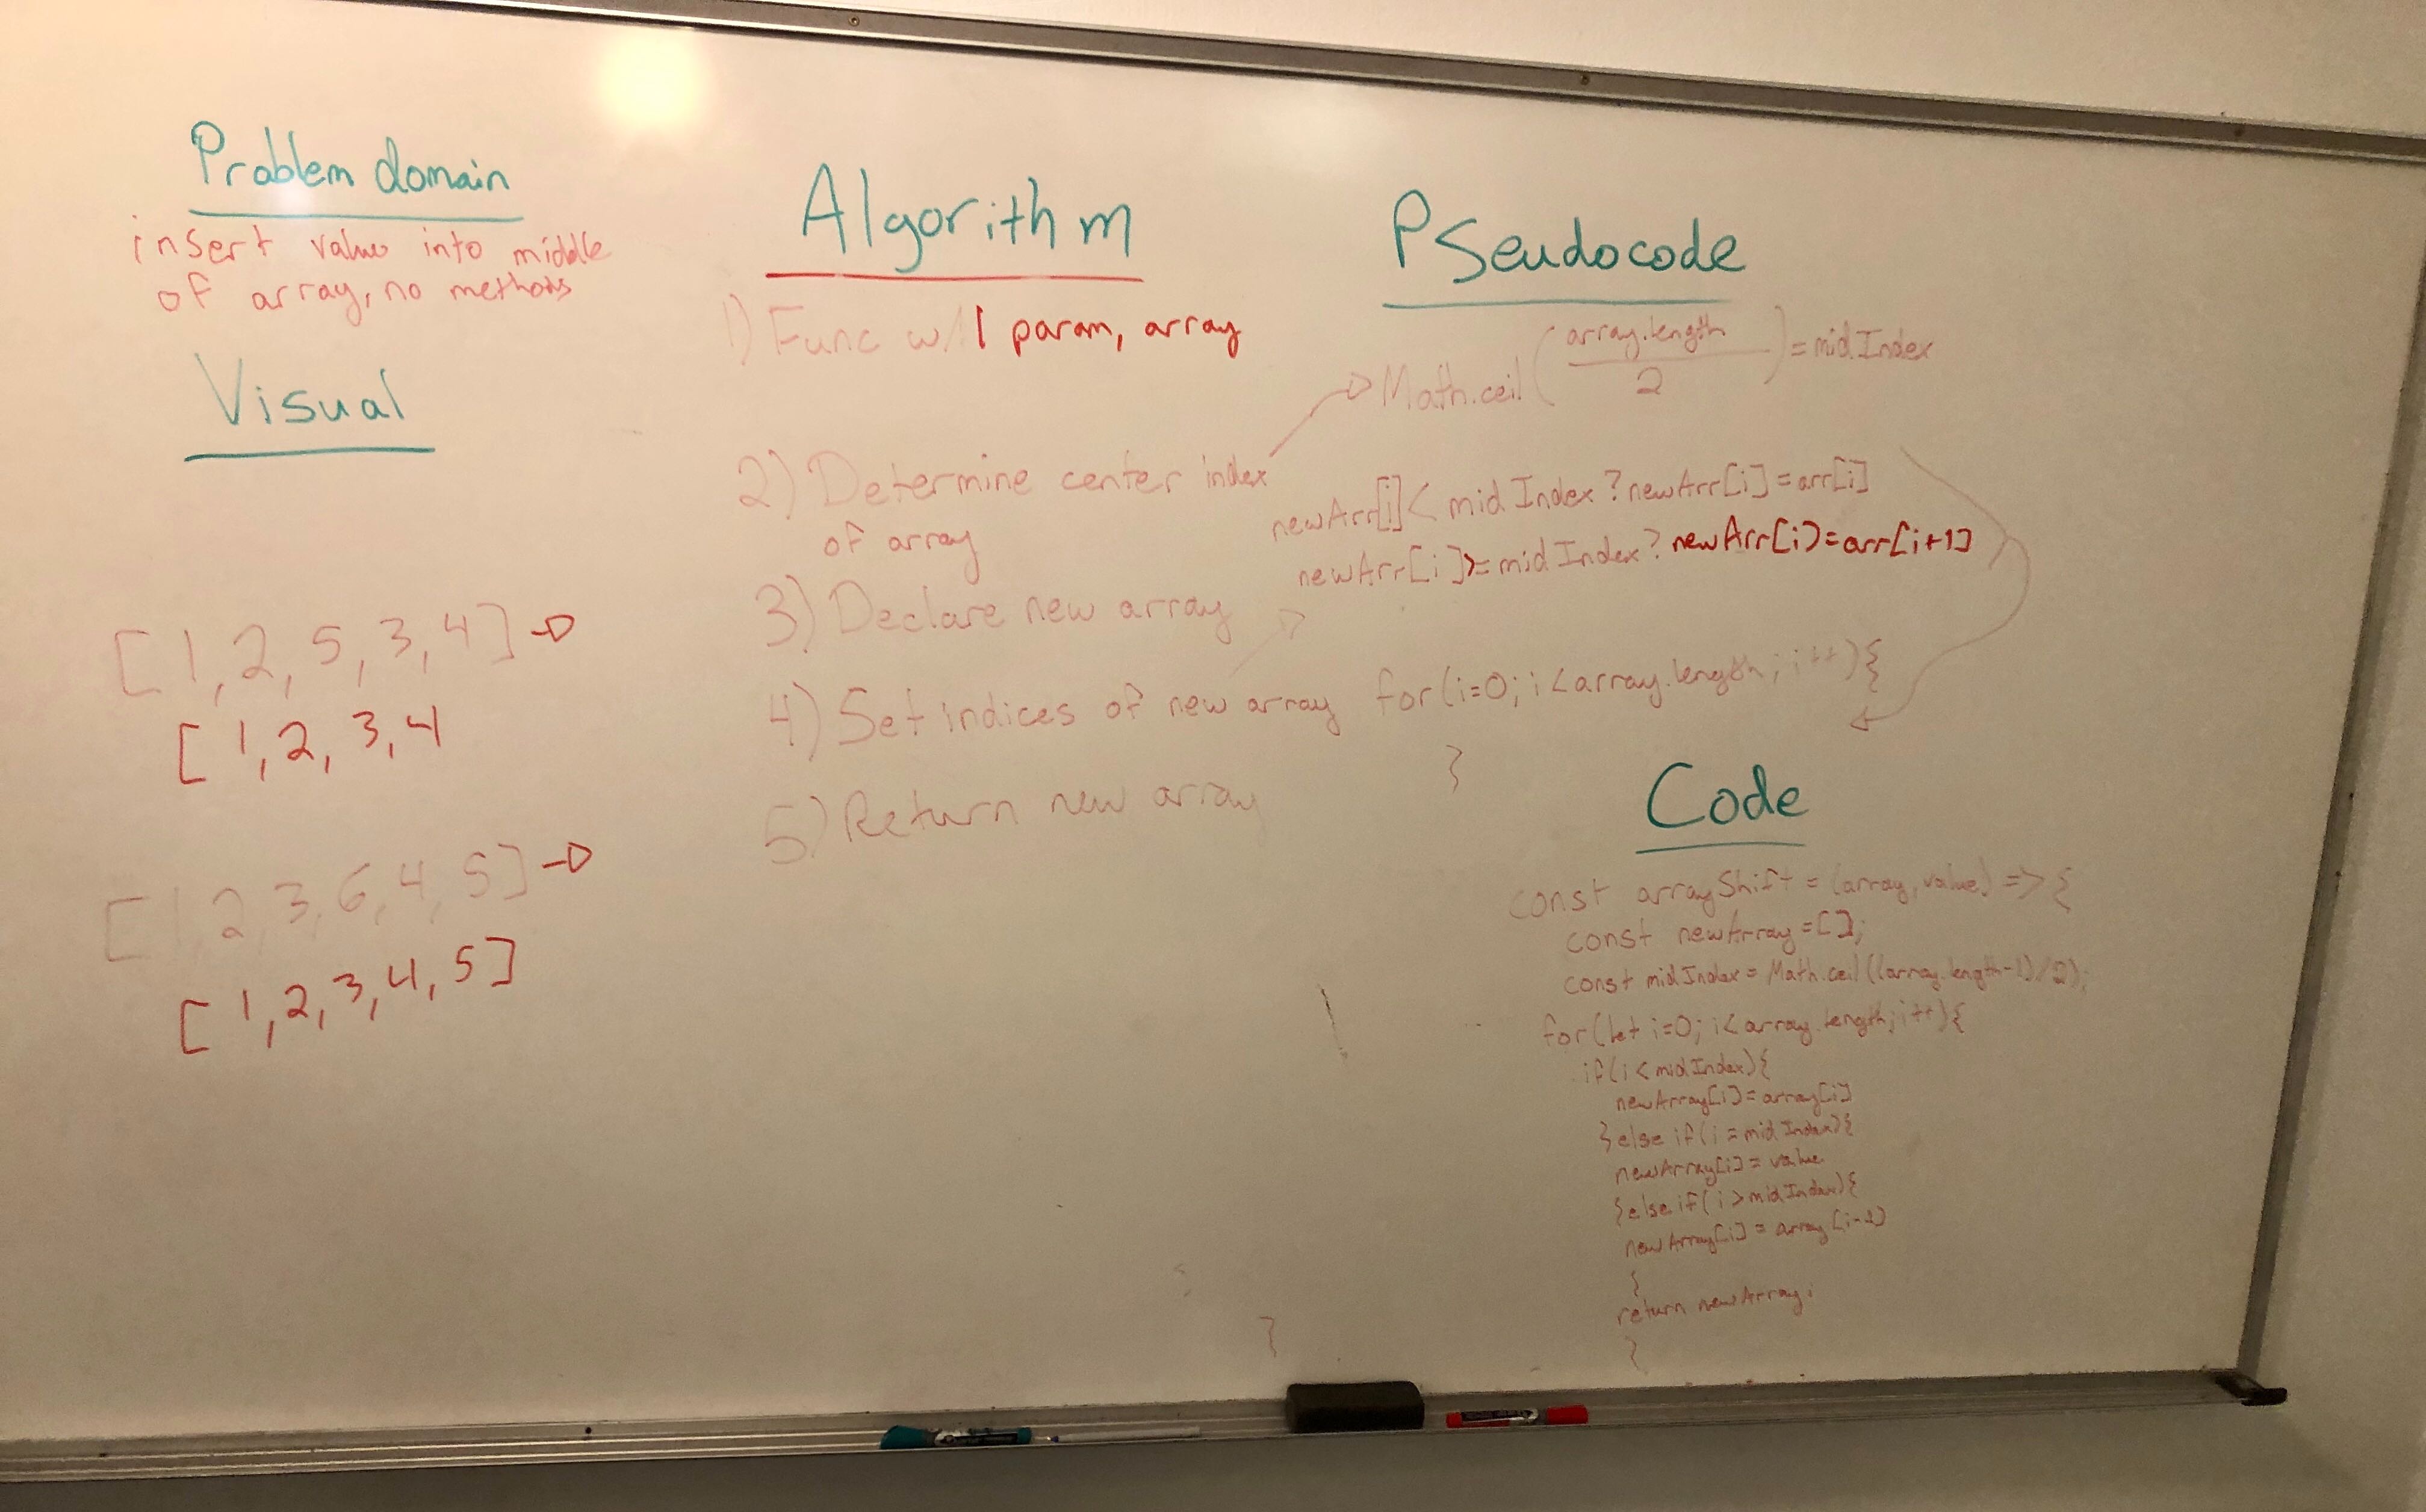 Problem domain
insert value into middle
of array, no methods
Visual
[1, 2, 5, 3, 4] →
[1, 2, 3, 4
[1, 2, 3, 6, 4, 5] →
[1, 2, 3, 4, 5]
Algorithm
1) Func w/ 1 param, array
2) Determine center index
of array
3) Declare new array
4) Set indices of new array
5) Return new array
Pseudocode
Math.ceil(array.length / 2) = midIndex
newArr[i] < midIndex ? newArr[i] = arr[i]
newArr[i] >= midIndex ? newArr[i] = arr[i+1]
for(i=0; i<array.length; i++){
}
Code
const arrayShift = (array, value) => {
const newArray = [];
const midIndex = Math.ceil((array.length-1)/2);
for(let i=0; i<array.length; i++){
if(i<midIndex){
newArray[i] = array[i]
}else if(i = midIndex){
newArray[i] = value
}else if(i > midIndex){
newArray[i] = array[i-1]
}
return newArray;
}
}